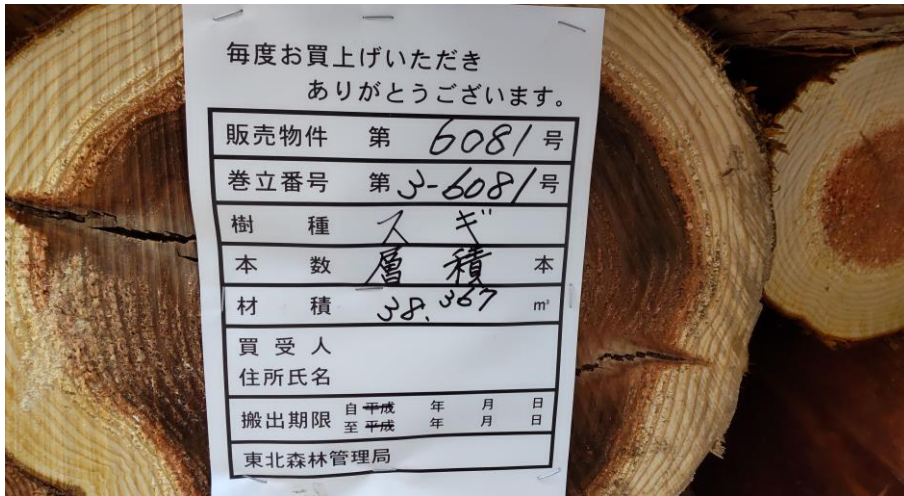 毎度お買上げいただき
ありがとうございます。
販売物件 第 6081 号
巻立番号 第 3-6081 号
樹種 スギ
本数 層積 本
材積 38.367 m³
買受人
住所氏名
搬出期限 自 平成 年 月 日
至 平成 年 月 日
東北森林管理局